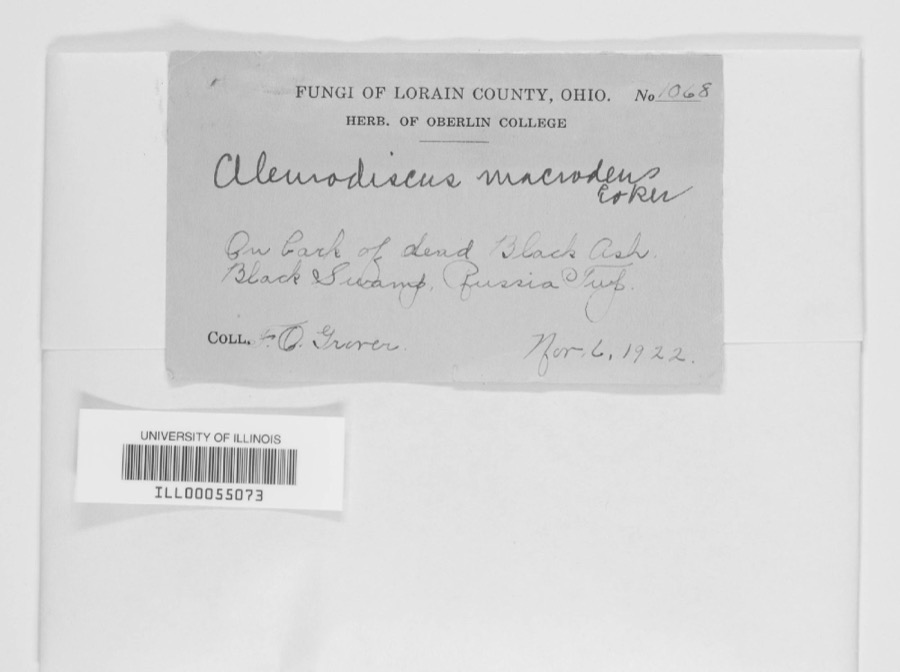 FUNGI OF LORAIN COUNTY, OHIO. No 1068
HERB. OF OBERLIN COLLEGE
Aleurodiscus macrodens
Coker
On bark of dead Black Ash.
Black Swamp, Russia Twp.
COLL. F. O. Grover.
Nov. 6, 1922.
UNIVERSITY OF ILLINOIS
ILL00055073